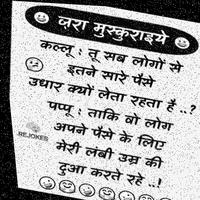 ज़रा मुस्कुराइये
कल्लू : तू सब लोगों से
इतने सारे पैसे
उधार क्यों लेता रहता है ..?
पप्पू : ताकि वो लोग
अपने पैसे के लिए
मेरी लंबी उम्र की
दुआ करते रहे ..!
REJOKES